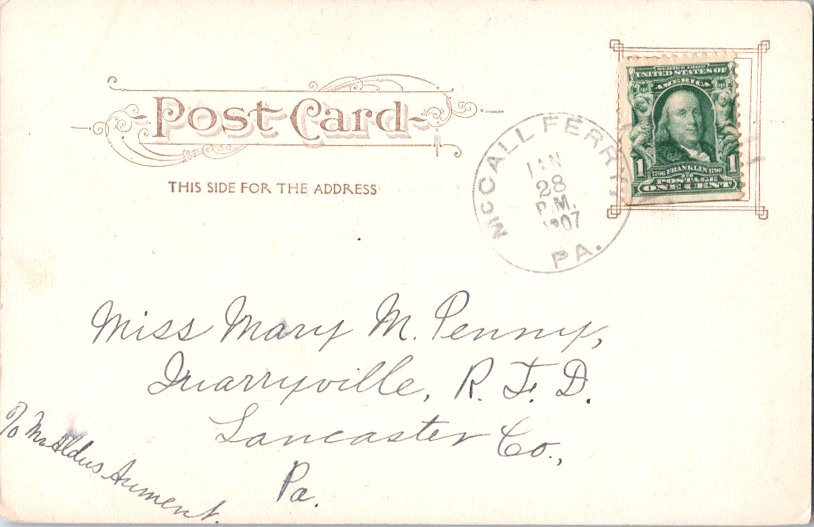 Post Card
THIS SIDE FOR THE ADDRESS
MCCALL FERRY,
JAN
28
P.M.
1907
PA.
SERIES 1902
UNITED STATES OF
AMERICA
1706 FRANKLIN 1790
1 1
POSTAGE
ONE CENT
Miss Mary M. Penny,
Quarryville, R. F. D.
Lancaster Co.,
Pa.
To Mr Aldus Aument.